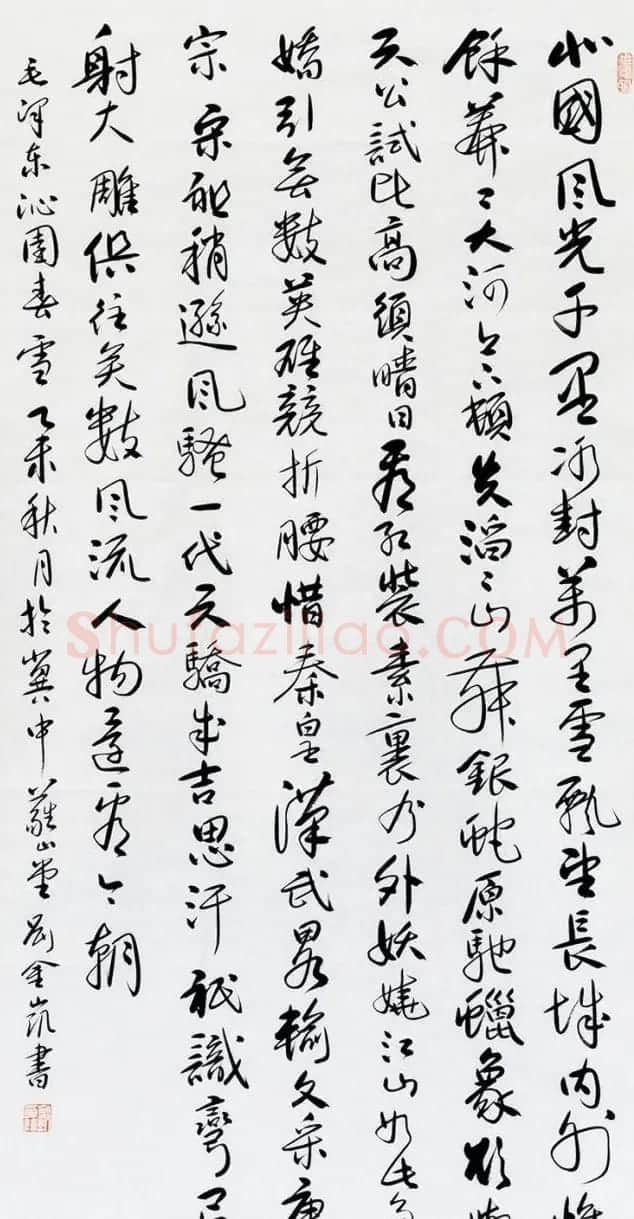 北國風光千里冰封萬里雪飄望長城内外惟
餘莽〻大河上下頓失滔〻山舞銀蛇原馳蠟象欲
天公試比高須晴日看紅裝素裹分外妖嬈江山如此多
嬌引無數英雄競折腰惜秦皇漢武略輸文采唐
宗宋祖稍遜風騷一代天驕成吉思汗祇識彎弓
射大雕俱往矣數風流人物還看今朝
毛泽东沁園春雪乙未秋月於冀中山堂劉金凱書
Shufaziliao.COM